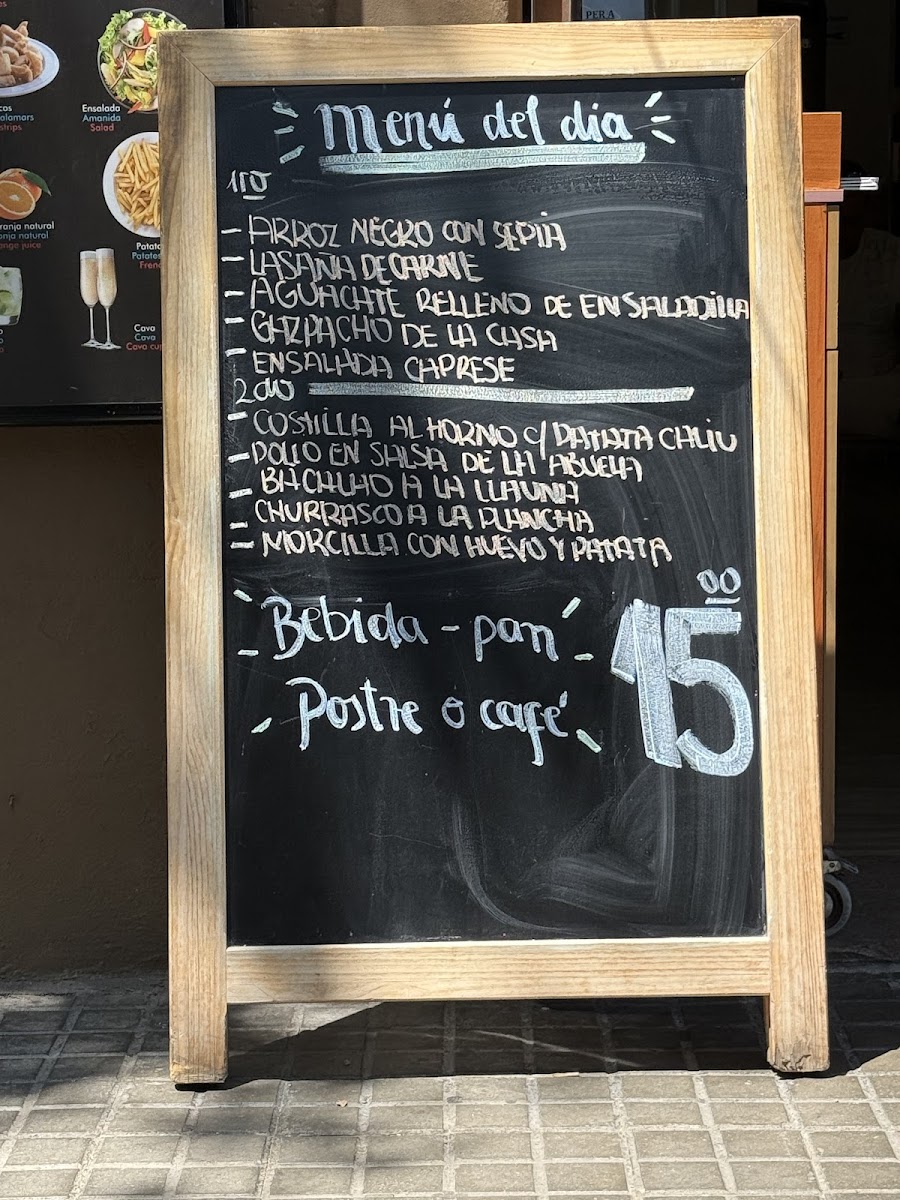 PER A
cos
alamars
strips
Ensalada
Amanida
Salad
ranja natural
onja natural
nge juice
Patata
Patates
Frenc
Cava
Cava
Cava cup
Menú del dia
1ro
- ARROZ NEGRO CON SEPIA
- LASAÑA DE CARNE
- AGUACATE RELLENO DE ENSALADILLA
- GAZPACHO DE LA CASA
- ENSALADA CAPRESE
2do
- COSTILLA AL HORNO C/ PATATA CALIU
- POLLO EN SALSA DE LA ABUELA
- BACALAO A LA LLAUNA
- CHURRASCO A LA PLANCHA
- MORCILLA CON HUEVO Y PATATA
Bebida - pan
Postre o café
15 00